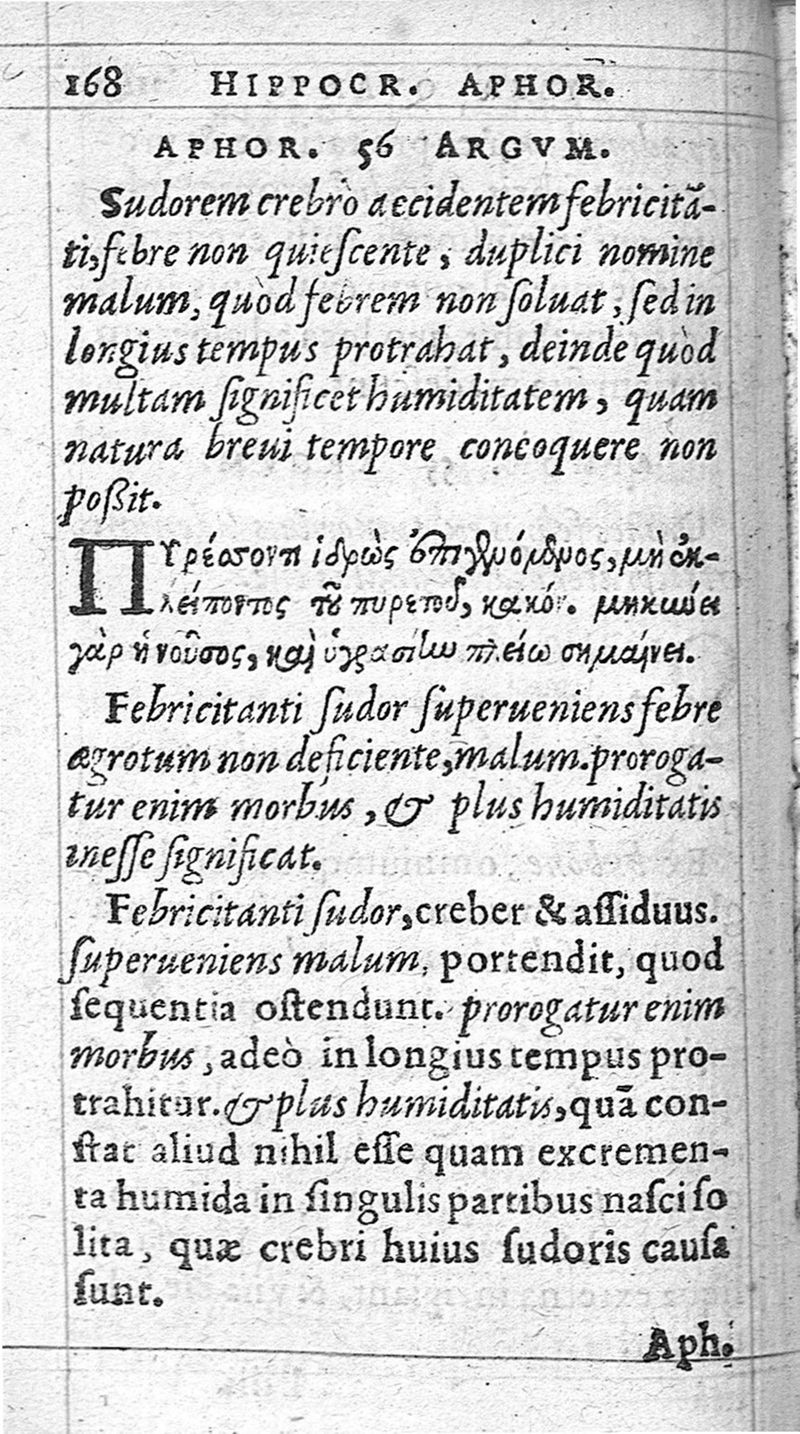 168 HIPPOCR. APHOR.
APHOR. 56 ARGVM.
Sudorem crebrò accidentem febricitā-
ti, febre non quiescente, duplici nomine
malum, quòd febrem non soluat, sed in
longius tempus protrahat, deinde quòd
multam significet humiditatem, quam
natura breui tempore concoquere non
poßit.
Πυρέσσοντι ἱδρὼς ἐπιγενόμενος, μὴ ἐκ-
λείποντος τοῦ πυρετοῦ, κακόν. μηκύνει
γὰρ ἡ νοῦσος, καὶ ὑγρασίην πλείω σημαίνει.
Febricitanti sudor superueniens febre
ægrotum non deficiente, malum. proroga-
tur enim morbus, & plus humiditatis
inesse significat.
Febricitanti sudor, creber & assiduus.
superueniens malum, portendit, quod
sequentia ostendunt. prorogatur enim
morbus, adeò in longius tempus pro-
trahitur. & plus humiditatis, quā con-
stat aliud nihil esse quam excremen-
ta humida in singulis partibus nasci so
lita, quæ crebri huius sudoris causa
sunt.
Aph.